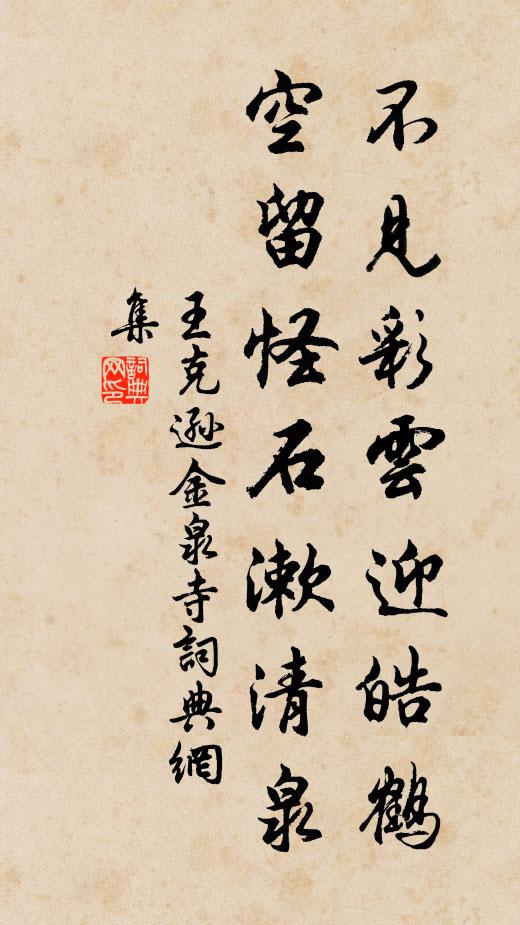 不見彩雲迎皓鶴
空留怪石漱清泉
王克逊金泉寺詞典網
集
詞典
网印